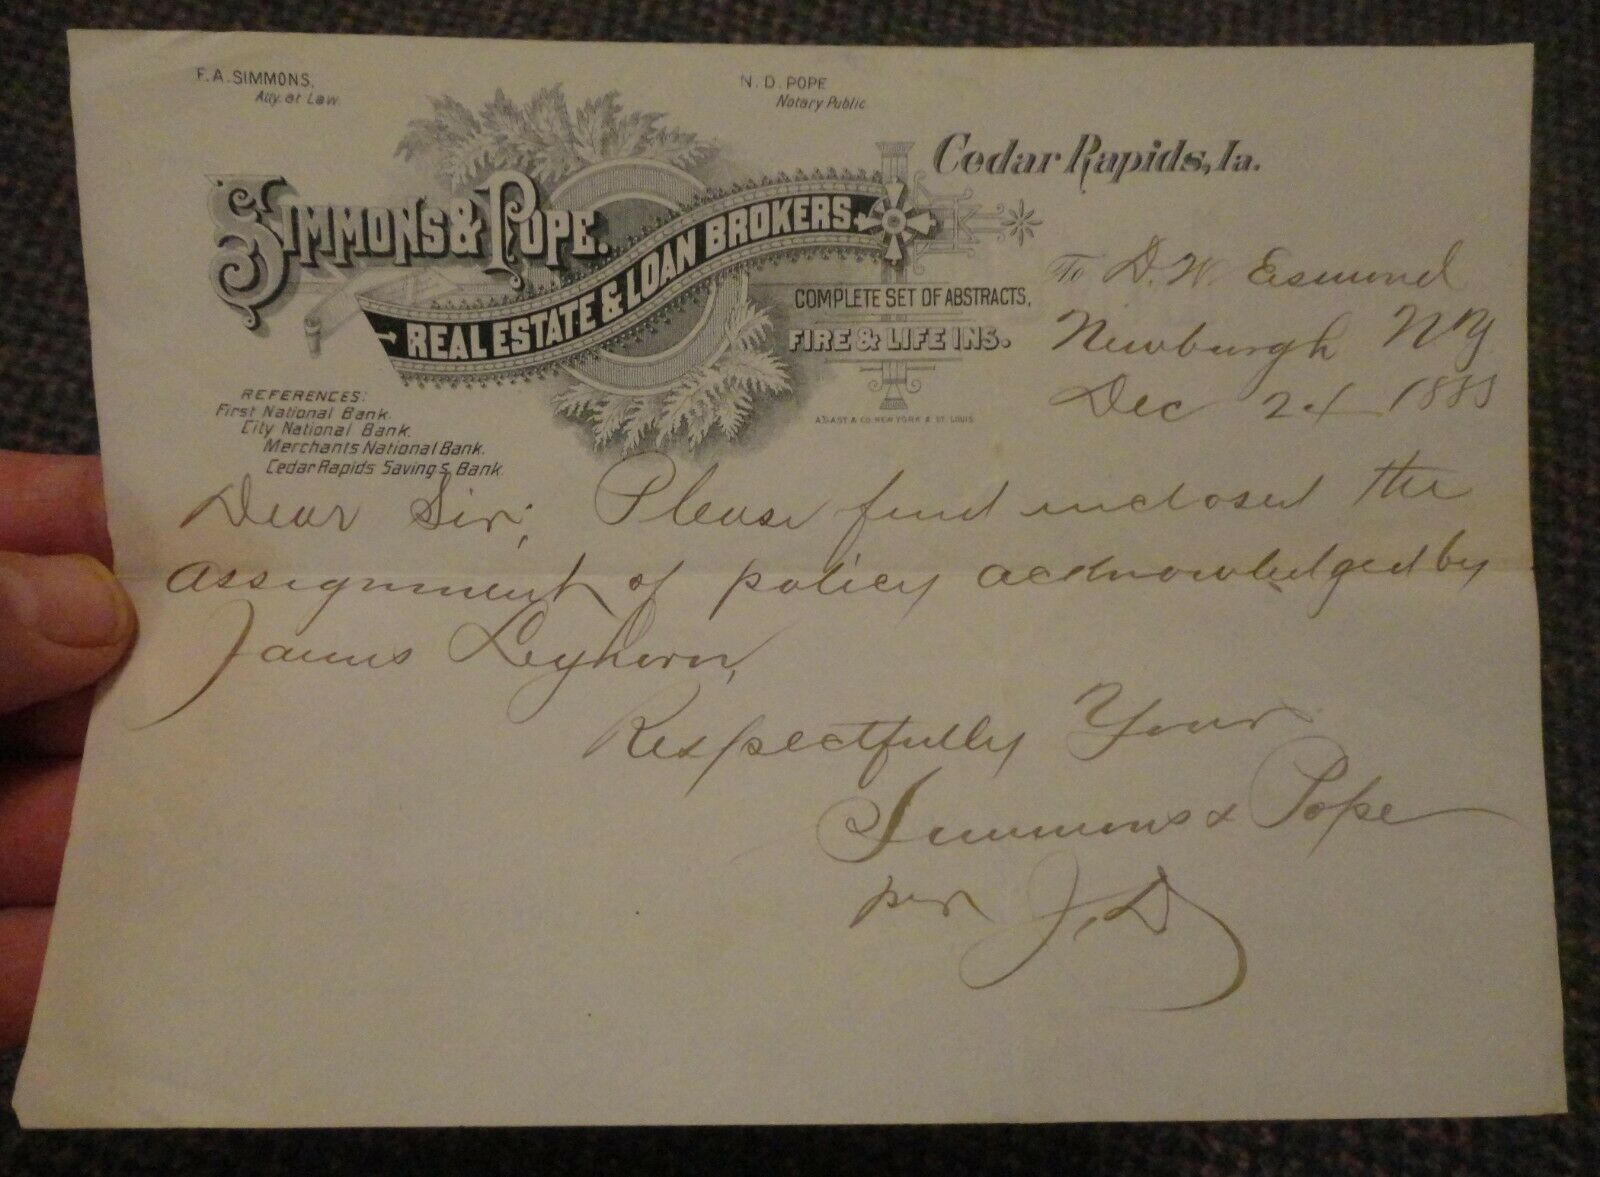 F.A. SIMMONS,
Atty. at Law.
N. D. POPE
Notary Public
SIMMONS & POPE.
REAL ESTATE & LOAN BROKERS
COMPLETE SET OF ABSTRACTS,
FIRE & LIFE INS.
Cedar Rapids, Ia.
REFERENCES:
First National Bank.
City National Bank.
Merchants National Bank.
Cedar Rapids Savings Bank.
A. GAST & CO. NEW YORK & ST. LOUIS
To D. W. Esmond
Newburgh NY
Dec 24
Dear Sir; Please find inclosed the
assignment of policy acknowledged by
James Leghorn,
Respectfully Your
Simmons & Pope
per J. D